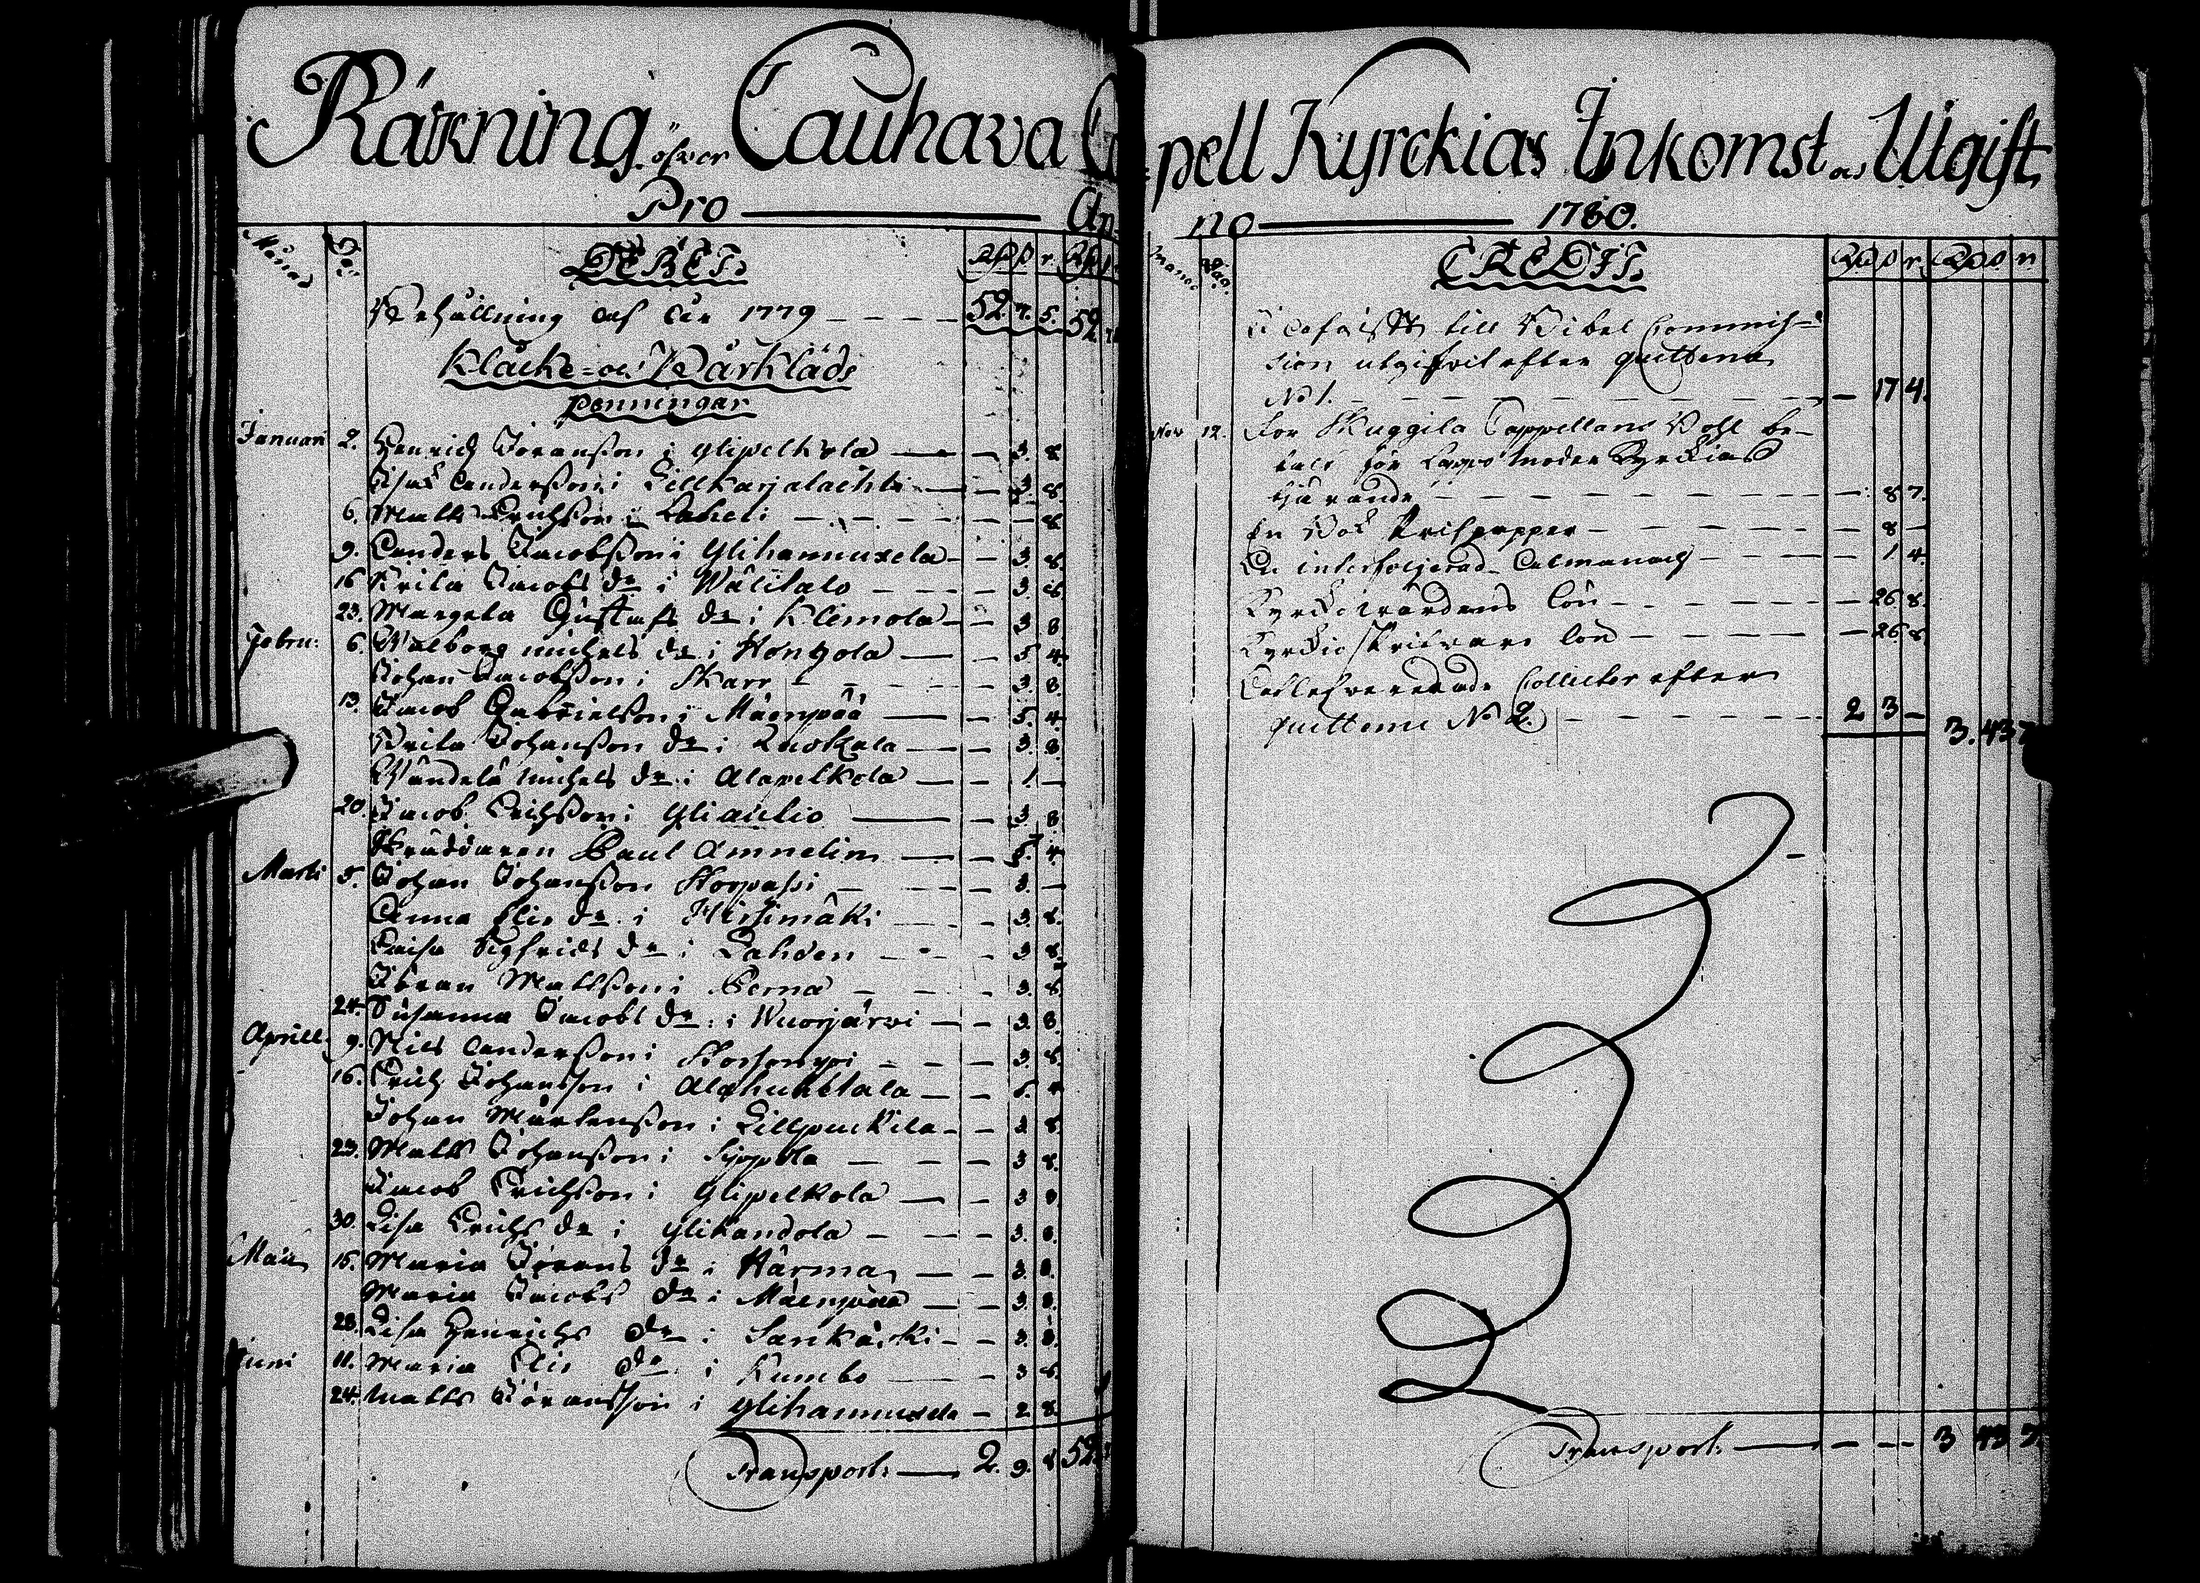 Räkning öfver Cauhava Capell Kyrckias Inkomst och Utgift
Pro Anno 1780.
Månad Dag
DEBET.
Rd s r. Rd
Behållning af År 1779 52. 7. 5. 52
Klåcke- och Bårklädes
penningar
Januari 2. Henrich Jöransson i Ylipelkola 3. 8.
Isak Andersson i Lillkarjalachti 3. 8.
6. Matts Erichsson i Laheli 8.
9. Anders Jacobsson i Ylihannuxela 3. 8.
16 Brita Jacobs dr i Wälitalo 3. 8
23. Margeta Gustafs dr i Klemola 3 8
Febru: 6. Walborg Michels dr i Kongola 5 4
Johan Jacobsson i Skarp 3. 8
13. Jacob Gabrielsson i Mäenpää 5. 4
Brita Johansson dr i Luokala 3. 8
Wändela Michels dr i Alapelkola 1
20. Jacob Erichsson i Yliaulio 3 8
Skräddaren Paul Amnelin 5. 4
Marti 5. Johan Johansson Korpassi 3.
Anna Elis dr i Hirsimäki 3. 8.
Caisa Sigfrids dr i Lahden 3 8
Jöran Mattsson i Perna 3. 8.
24. Susanna Jacobs dr i Wuorjärwi 3. 8
Aprill 9. Nils Andersson i 3. 8.
16. Erich Johansson i Alahuhtala 5. 4
Johan Mårtensson i Lillpuckila 3 8
23. Matts Johansson i Sippola 3 8.
Jacob Erichsson i Ylipelkola 3 8
30. Lisa Erichs dr i Ylikandola 3. 8.
Maii 15. Maria Jörans dr i Härma 3 8.
Maria Jacobs dr i Mäenpää 3. 8.
28. Lisa Henrichs dr i 3. 8.
Juni 11. Maria Elis dr i Kumbo 3 8
24. Matts Jöransson i Ylihannuxela 2 8.
Transport 2. 9. 8 52
Månad Dag
CREDIT.
Rd s r. Rd s. r.
till Bibel Commis-
sion utgifvit efter quittence
No 1. 17 4.
Nov 12. För Skuggila Cappellans Bohl be-
talt för Lappo Moder Kyrckias
8 7.
En Bok Skrifpapper 8
En interfolierad Calmanach 1 4.
Kyrckiowärdens lön 26 8.
Kyrckioskrifvare lön 26 8
Collecter efter
quittence No 2. 2 3 3. 43 7
Transport 3 43 7.